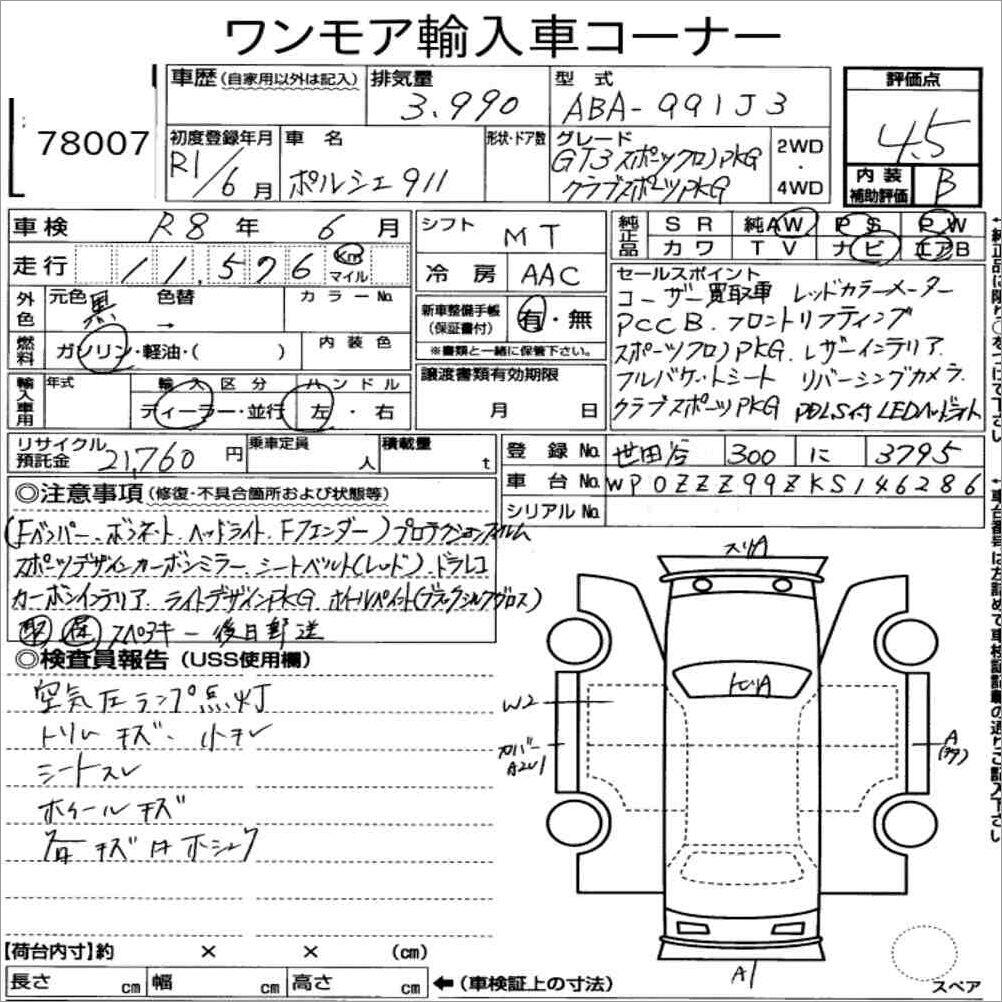 ワンモア輸入車コーナー
78007
車歴(自家用以外は記入)
排気量
3.990
型式
ABA-991J3
評価点
4.5
内装補助評価
B
初度登録年月
R1/6月
車名
ポルシェ911
形状・ドア数
グレード
GT3 スポーツクロノPKG
クラブスポーツPKG
2WD
・
4WD
車検 R8年 6月
走行 11,576 Km マイル
シフト MT
冷房 AAC
純正品
SR 純AW PS PW
カワ TV ナビ エアB
外色
元色 黒 色替 →
カラーNo.
燃料
ガソリン・軽油・( )
内装色
新車整備手帳(保証書付)
有・無
※書類と一緒に保管下さい。
セールスポイント
ユーザー買取車 レッドカラーメーター
PCCB. フロントリフティング
スポーツクロノPKG. レザーインテリア.
フルバケットシート リバーシングカメラ.
クラブスポーツPKG PDLS付LEDヘッドライト
輸入車用
年式
輸入区分
ディーラー・並行
ハンドル
左・右
譲渡書類有効期限
月 日
リサイクル預託金 21,760円
乗車定員 人
積載量 t
登録No. 世田谷 300 に 3795
車台No. WP0ZZZ99ZKS146286
シリアルNo.
◎注意事項(修復・不具合箇所および状態等)
(Fバンパー、ボンネット、ヘッドライト、Fフェンダー)プロテクションフィルム
スポーツデザインカーボンミラー、シートベルト(レッド)、ドラレコ
カーボンインテリア. ライトデザインPKG. ホイールペイント(ブラックシルクグロス)
取 保 スペアキー後日郵送
◎検査員報告(USS使用欄)
空気圧ランプ点灯
トリムキズ、小ヨレ
シートスレ
ホイールキズ
スリA
トビA
W2
カバー
A2U1
A
A1
スペア
【荷台内寸】約 × × (cm)
長さ cm 幅 cm 高さ cm ←(車検証上の寸法)